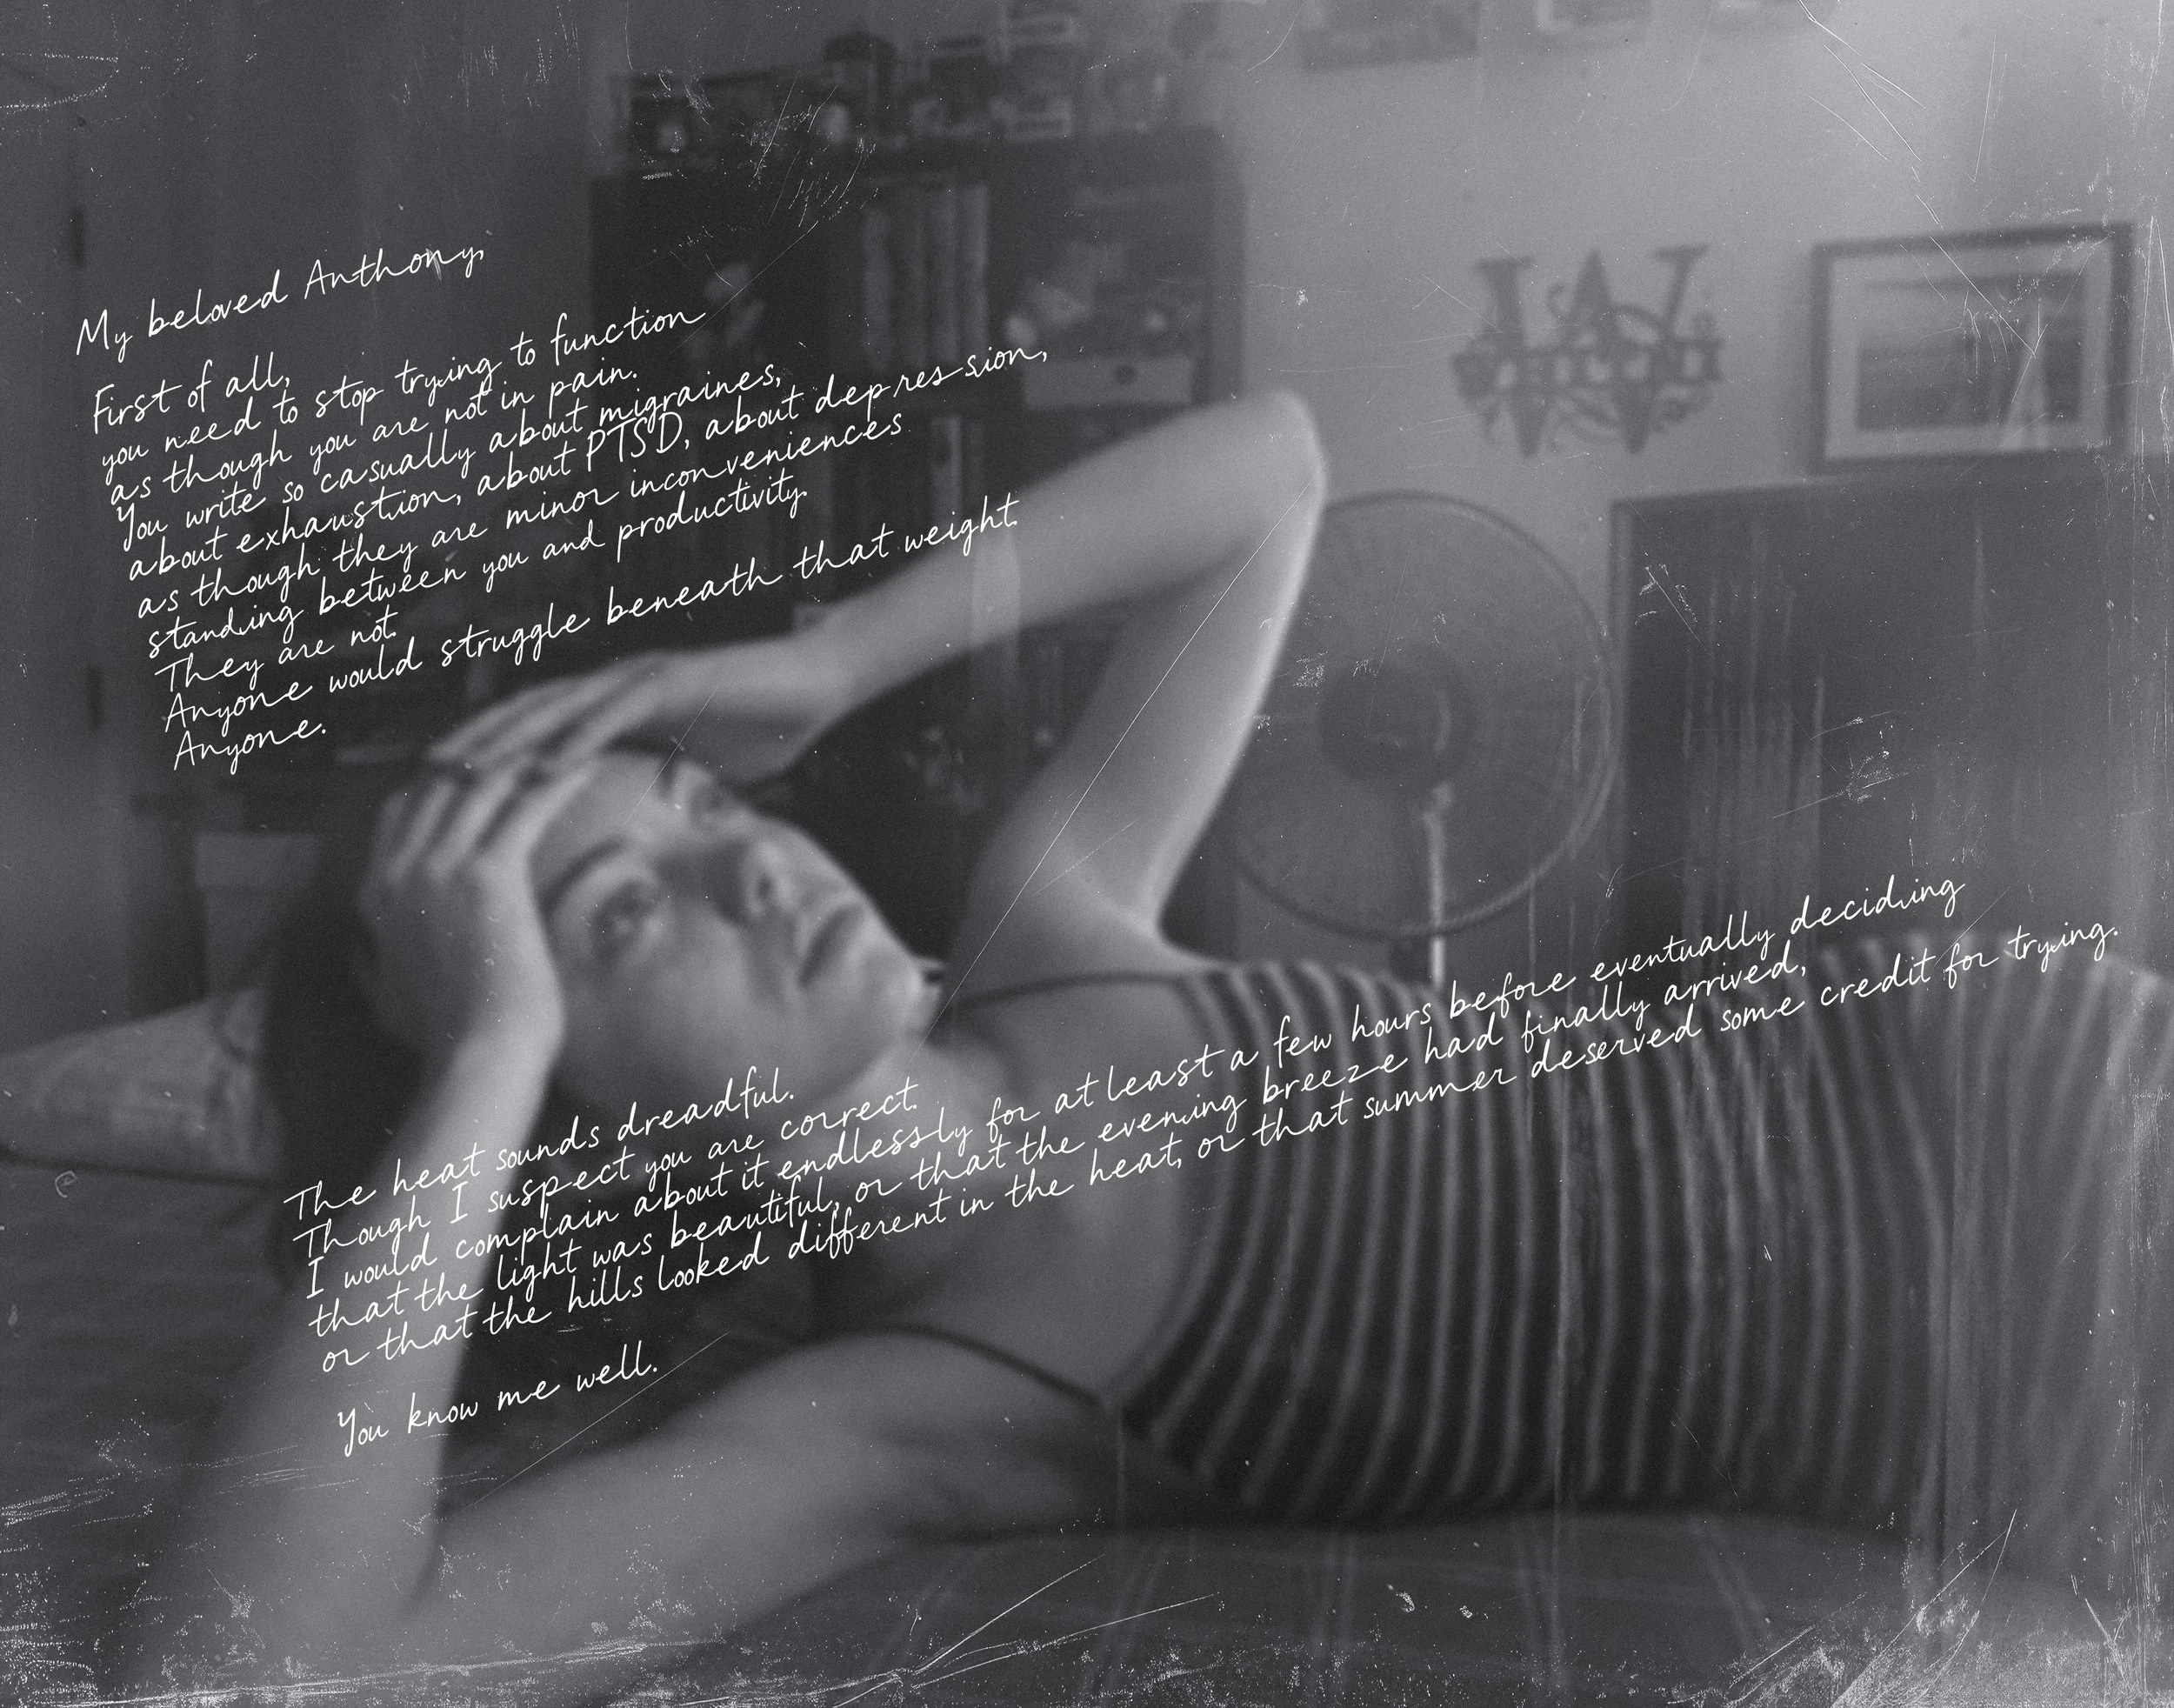 My beloved Anthony,
First of all,
you need to stop trying to function
as though you are not in pain.
You write so casually about migraines,
about exhaustion, about PTSD, about depression,
as though they are minor inconveniences
standing between you and productivity.
They are not.
Anyone would struggle beneath that weight.
Anyone.
W
The heat sounds dreadful.
Though I suspect you are correct.
I would complain about it endlessly for at least a few hours before eventually deciding
that the light was beautiful, or that the evening breeze had finally arrived,
or that the hills looked different in the heat, or that summer deserved some credit for trying.
You know me well.